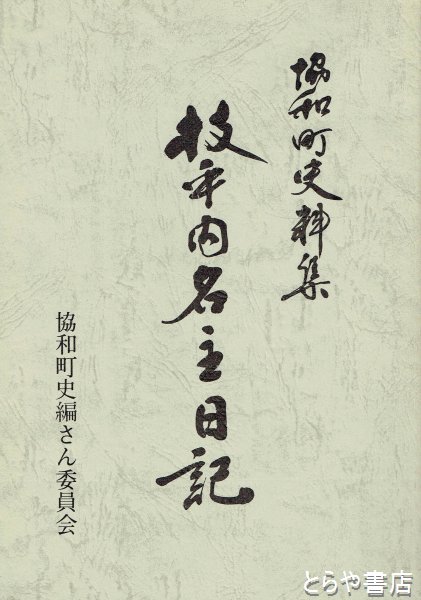 協和町史料集
枝平内名主日記
協和町史編さん委員会
とらや書店